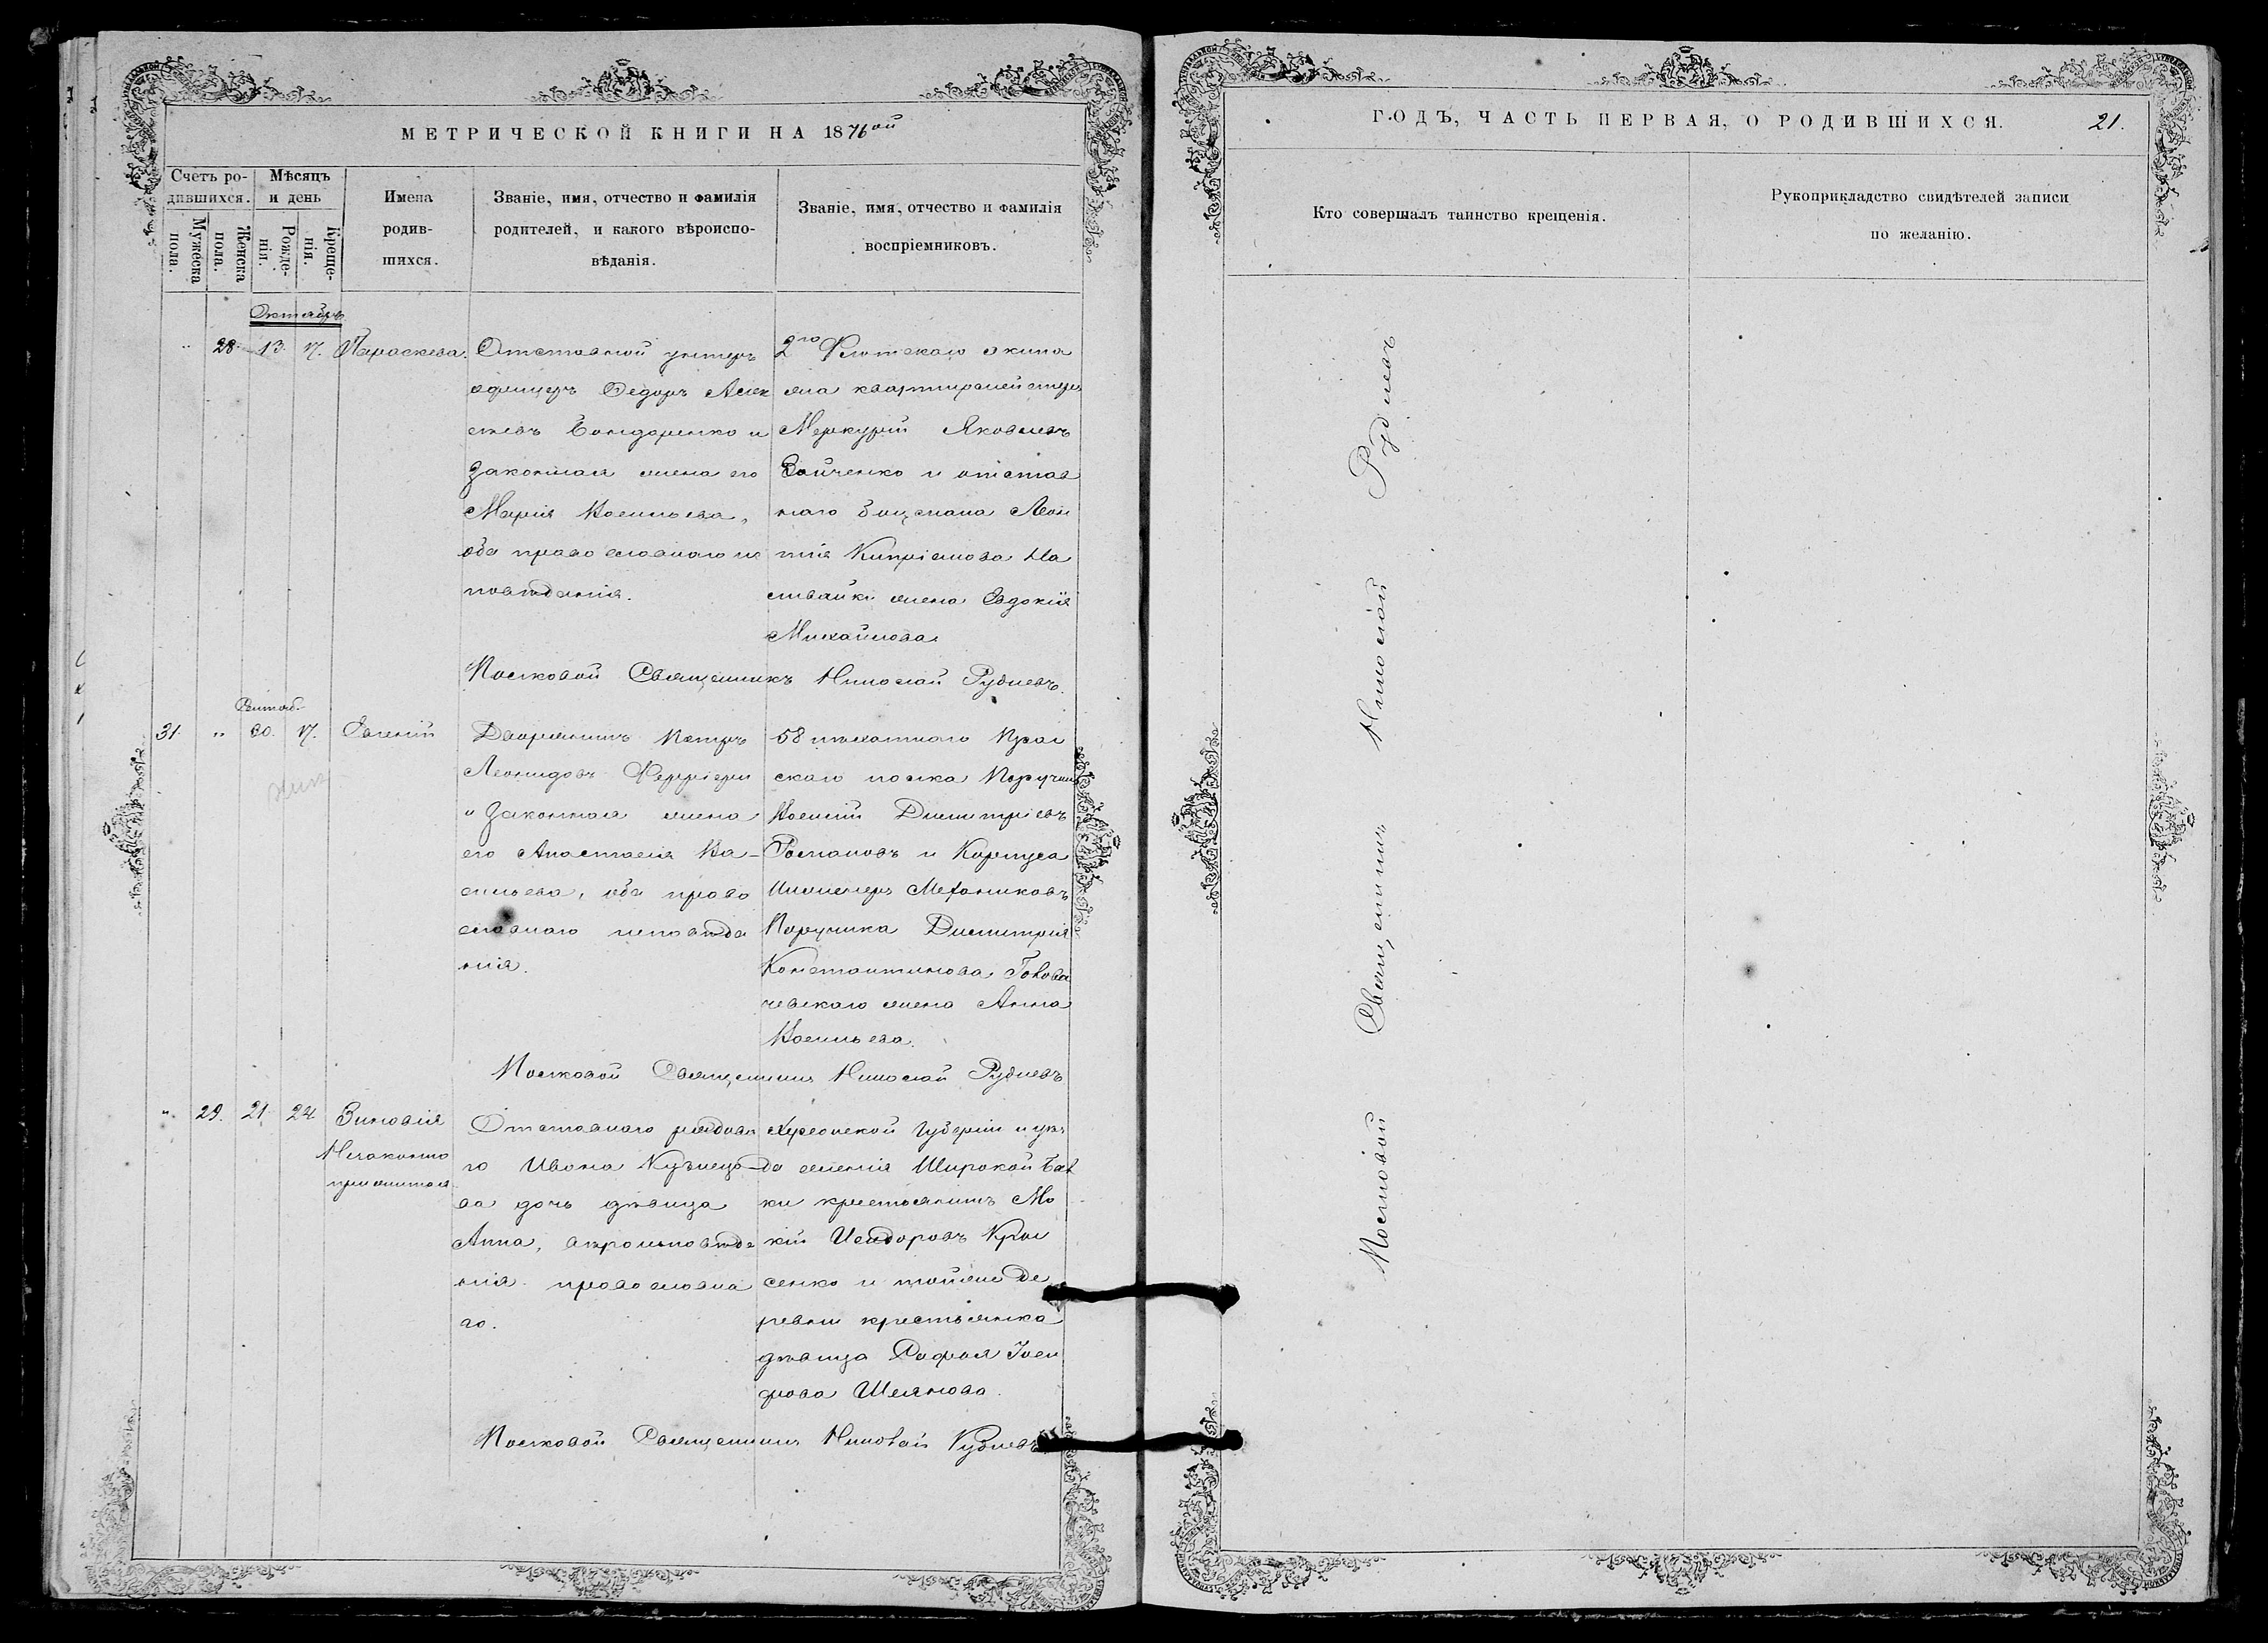 МЕТРИЧЕСКОЙ КНИГИ НА 1876ой
Счетъ ро-
дившихся.
Мѣсяцъ
и день
Мужеска
пола.
Женска
пола.
Рожде-
нія.
Креще-
нія.
Имена
родив-
шихся.
Званіе, имя, отчество и фамилія
родителей, и какого вѣроиспо-
вѣданія.
Званіе, имя, отчество и фамилія
воспріемниковъ.
Октябрь
" 28. 13. 17. Параскева.
Отставной унтеръ
офицеръ Ѳедоръ Алек
сѣевъ Бондаренко и
законная жена его
Марія Васильева,
оба православнаго ис
повѣданія.
2го Флотскаго экипа
жа квартирмейстеръ
Меркурій Яковлевъ
Зайченко и отстав
наго боцмана Леон
тія Кипріанова На
ливайки жена Евдокія
Михайлова
Полковой Священникъ Николай Рудневъ.
Сентяб.
31. " 30. 17. Евгеній
Дворянинъ Петръ
Леонидовъ Ферріери
и законная жена
его Анастасія Ва-
сильева, оба право
славнаго исповѣда
нія.
58 пѣхотнаго Праг
скаго полка Поручикъ
Василій Димитріевъ
Романовъ и Корпуса
Инженеръ Механиковъ
Поручика Димитрія
Константинова Голова
чевскаго жена Анна
Васильева.
Полковой Священникъ Николай Рудневъ
" 29. 21. 24. Зиновія
Незаконно
прижитая
Отставнаго рядова
го Ивана Кузнецо
ва дочь дѣвица
Анна, вѣроисповѣда
нія православна
го.
Херсонской губерніи и уѣз
да селенія Широкой Бал
ки крестьянинъ Мо
кій Исидоровъ Кра
сенко и тойже де
ревни крестьянка
дѣвица Софья
Полковой Священникъ Николай Рудневъ
ГОДЪ, ЧАСТЬ ПЕРВАЯ, О РОДИВШИХСЯ.
21.
Кто совершалъ таинство крещенія.
Рукоприкладство свидѣтелей записи
по желанію.
Полковой Священникъ Николай Рудневъ